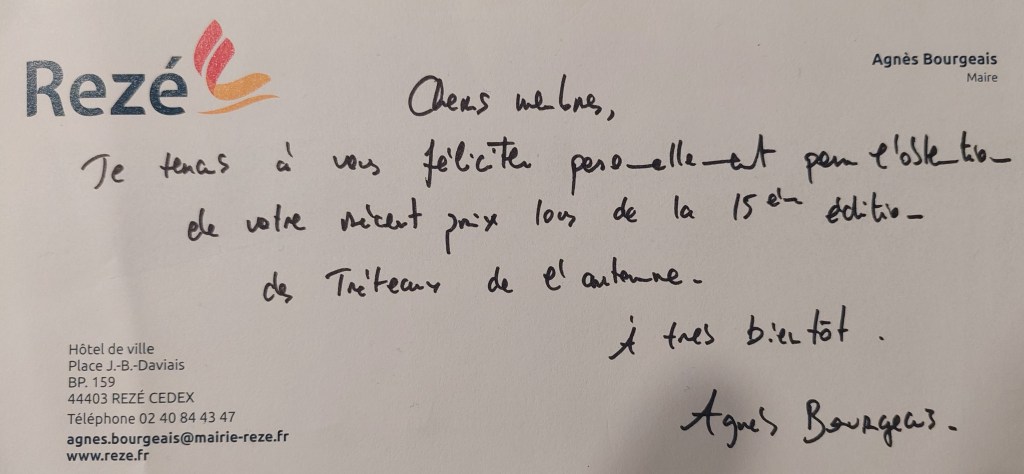 Rezé
Agnès Bourgeais
Maire
Chers membres,
Je tenais à vous féliciter personnellement pour l'obtention
de votre récent prix lors de la 15ème édition
des Tréteaux de l'automne.
À très bientôt.
Agnès Bourgeais.
Hôtel de ville
Place J.-B.-Daviais
BP. 159
44403 REZÉ CEDEX
Téléphone 02 40 84 43 47
agnes.bourgeais@mairie-reze.fr
www.reze.fr